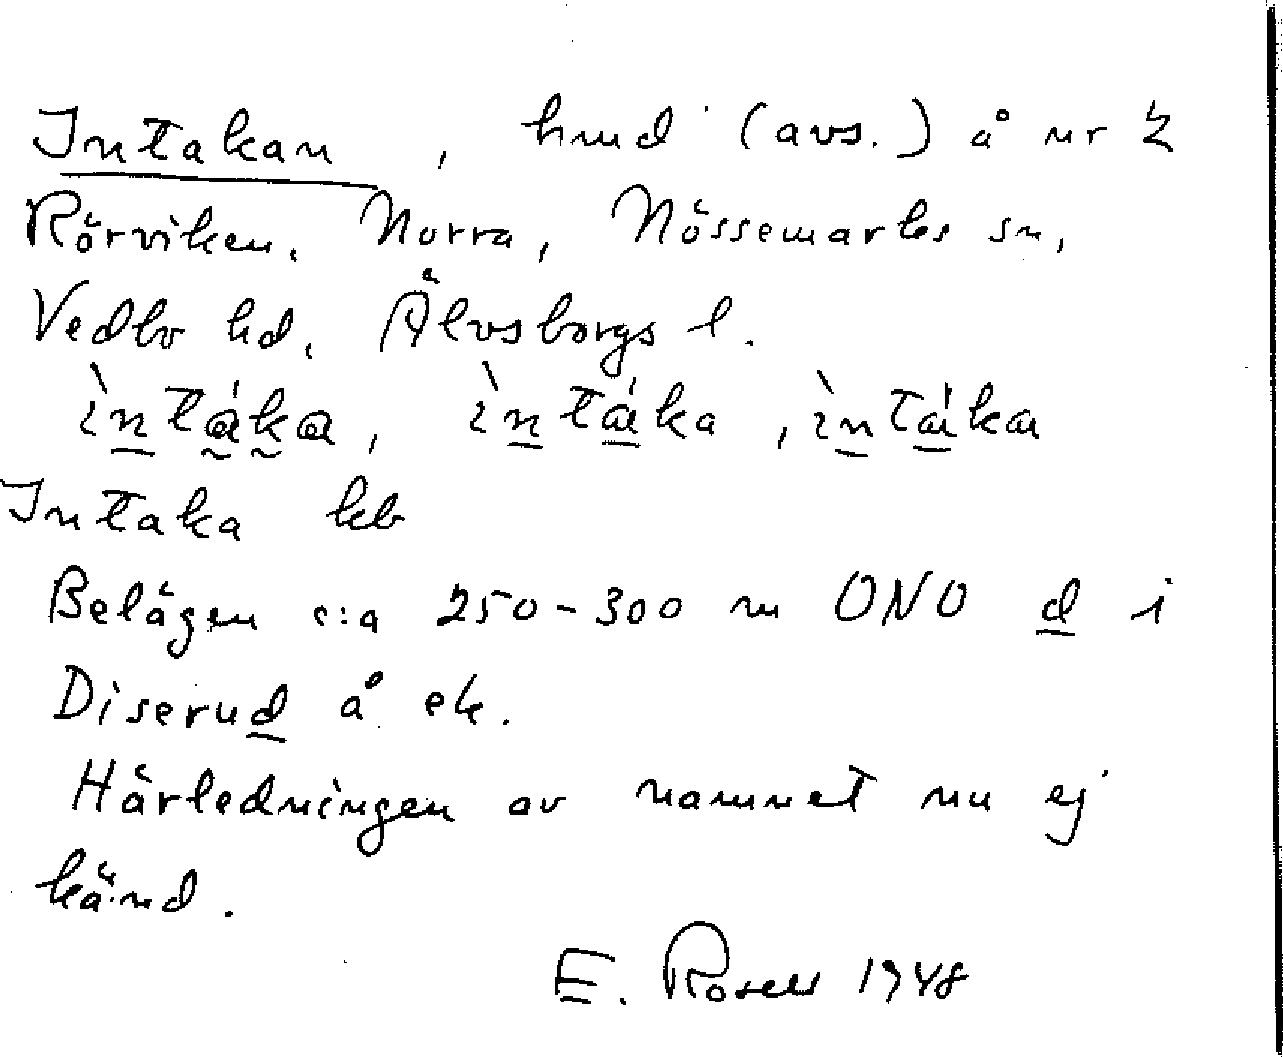 Intakan, hmd (avs.) å nr 2
Rörviken, Norra, Nössemarks sn,
Vedbo hd, Älvsborgs l.
ìntáka, ìntáka, ìntáka
Intaka kb
Belägen c:a 250-300 m ONO d i
Diserud å ek.
Härledningen av namnet nu ej
känd.
E. Rosell 1948